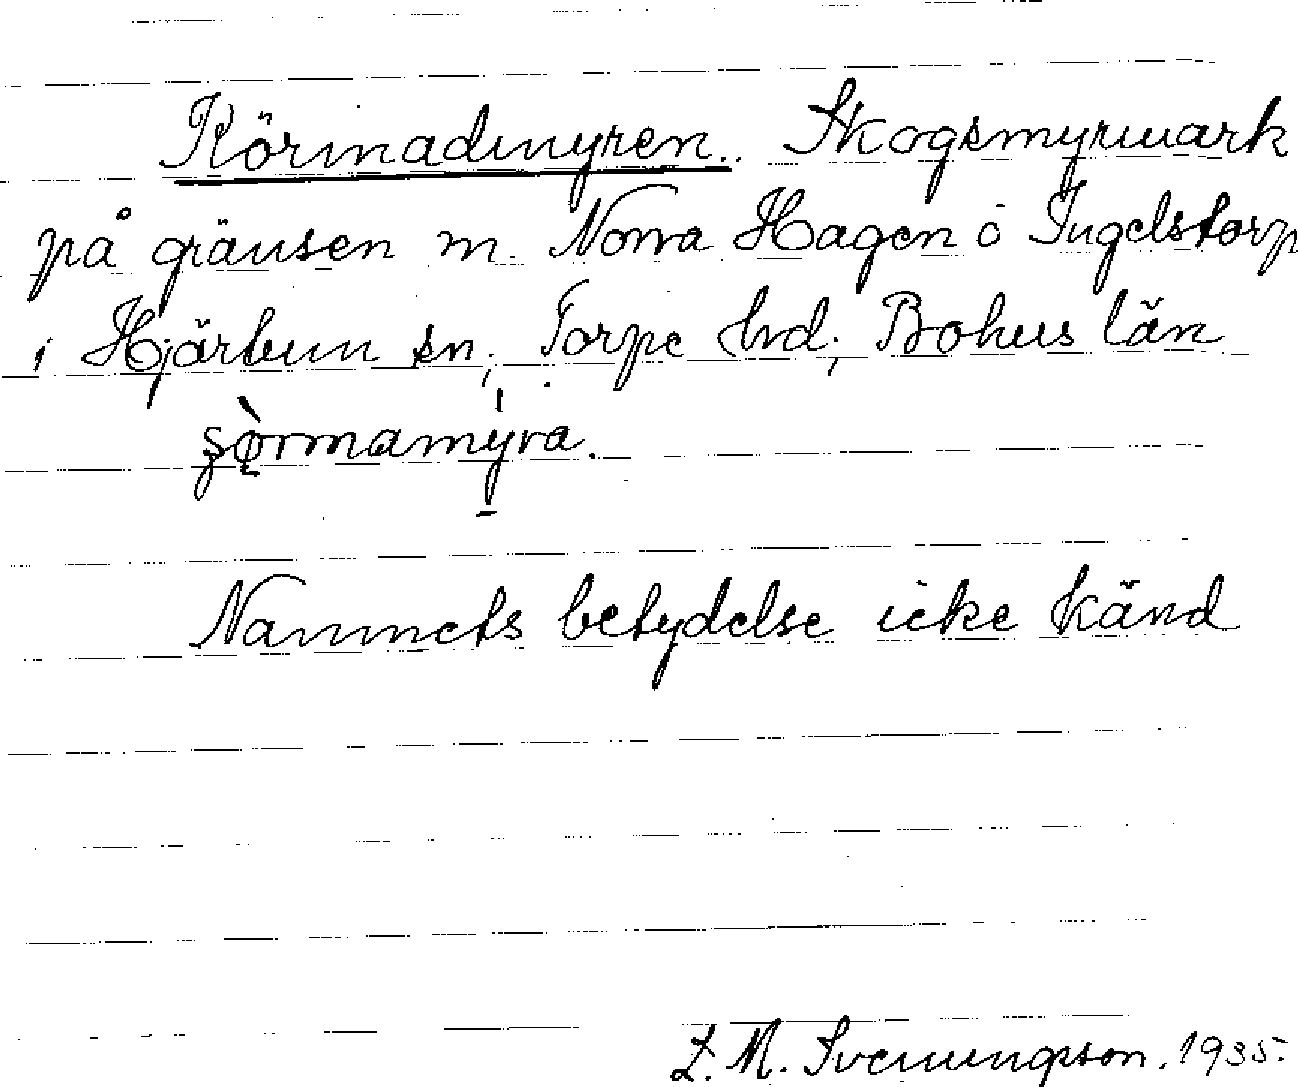 Körmadmyren. Skogsmyrmark
på gränsen m. Norra Hagen o Ingelstorp
i Hjärtum sn; Torpe hrd; Bohus län
şò̜rmamýra.
Nammets betydelse icke känd
L. M. Svenungson. 1935.